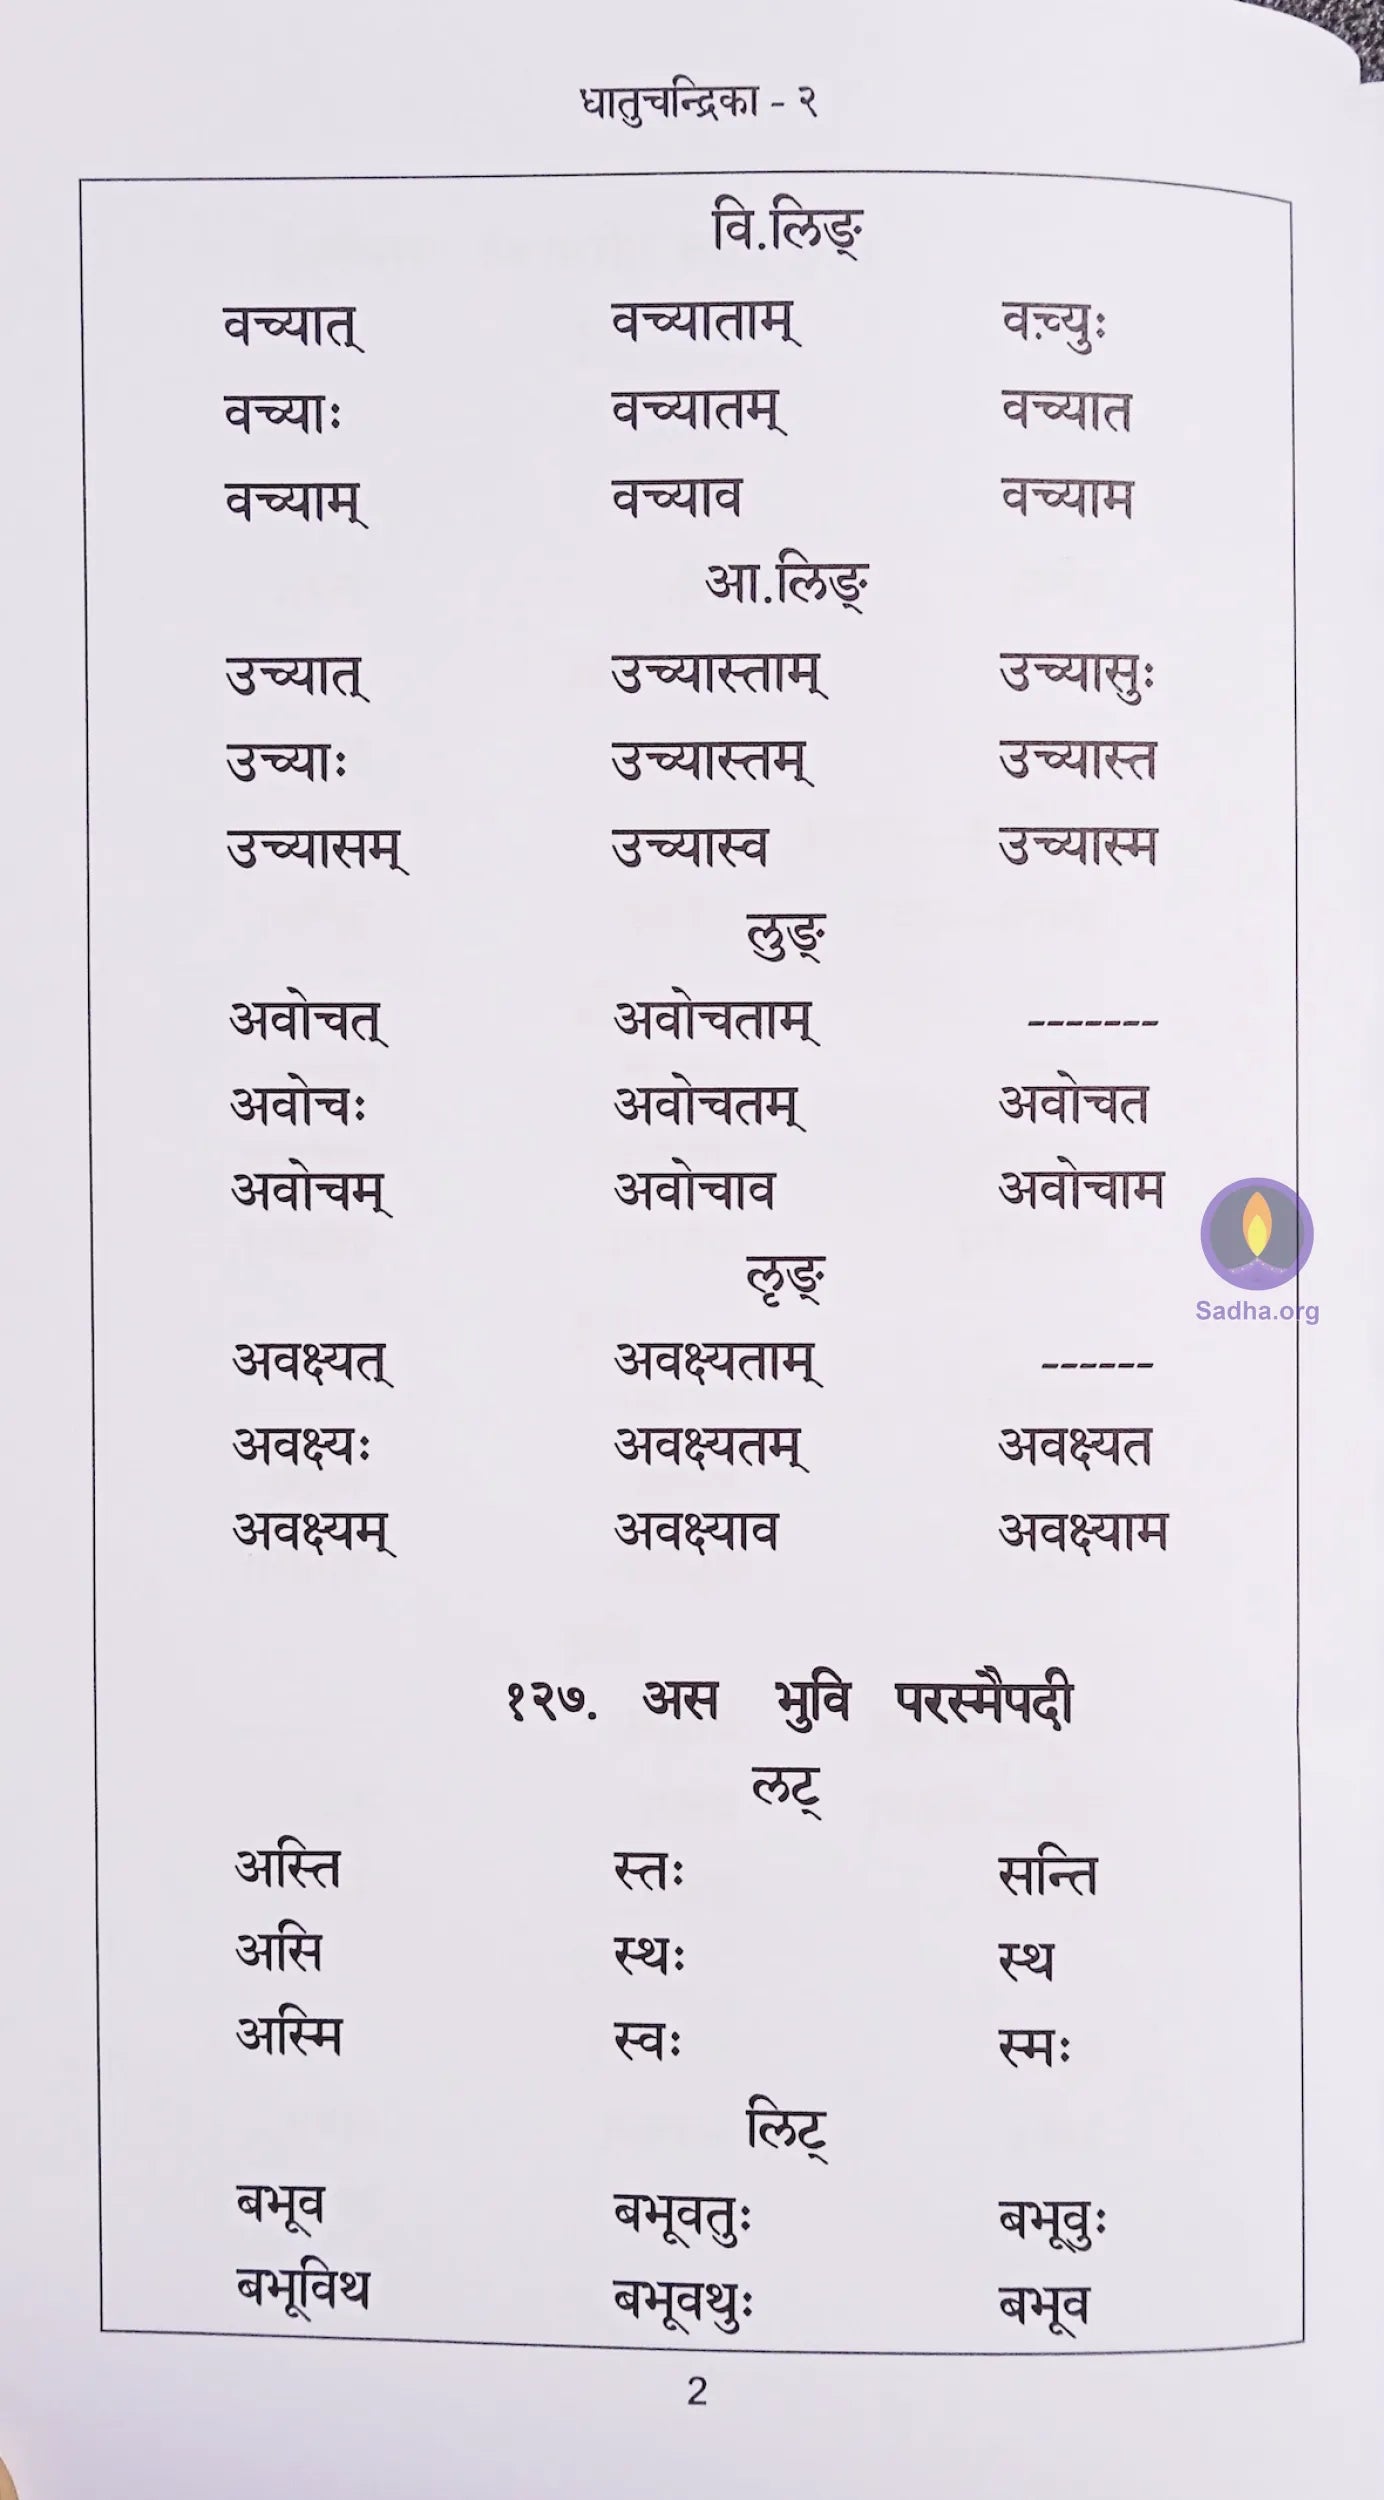 धातुचन्द्रिका - २
वि.लिङ्
वच्यात् वच्याताम् वच्युः
वच्याः वच्यातम् वच्यात
वच्याम् वच्याव वच्याम
आ.लिङ्
उच्यात् उच्यास्ताम् उच्यासुः
उच्याः उच्यास्तम् उच्यास्त
उच्यासम् उच्यास्व उच्यास्म
लुङ्
अवोचत् अवोचताम् -------
अवोचः अवोचतम् अवोचत
अवोचम् अवोचाव अवोचाम
लृङ्
अवक्ष्यत् अवक्ष्यताम् ------
अवक्ष्यः अवक्ष्यतम् अवक्ष्यत
अवक्ष्यम् अवक्ष्याव अवक्ष्याम
१२७. अस भुवि परस्मैपदी
लट्
अस्ति स्तः सन्ति
असि स्थः स्थ
अस्मि स्वः स्मः
लिट्
बभूव बभूवतुः बभूवुः
बभूविथ बभूवथुः बभूव
2
Sadha.org